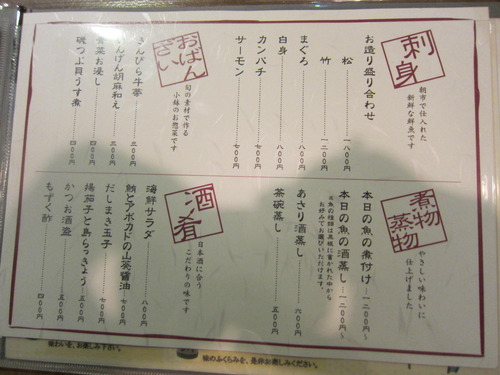 刺身
朝市で仕入れた
新鮮な鮮魚です
お造り盛り合わせ
松 一八〇〇円
竹 一二〇〇円
まぐろ 七〇〇円
白身 七〇〇円
カンパチ 七〇〇円
サーモン 七〇〇円
おばんざい
旬の素材で作る
小鉢のお惣菜です
きんぴら牛蒡 三〇〇円
いんげん胡麻和え 三〇〇円
青菜お浸し 四〇〇円
磯つぶ貝うす煮 四〇〇円
煮物
蒸物
やさしい味わいに
仕上げました
本日の魚の煮付け 一二〇〇円〜
本日の魚の酒蒸し 一二〇〇円〜
お好みでお選びいただけます。
あさり酒蒸し 六〇〇円
茶碗蒸し 五〇〇円
酒肴
日本酒に合う
こだわりの味です
海鮮サラダ 八〇〇円
鮪とアボカドの山葵醤油 七〇〇円
だしまき玉子 七〇〇円
揚茄子と島らっきょう 五〇〇円
かつお酒盗 五〇〇円
もずく酢 四〇〇円
味わいを、お楽しみください。
味のふくらみを、是非お楽しみください。